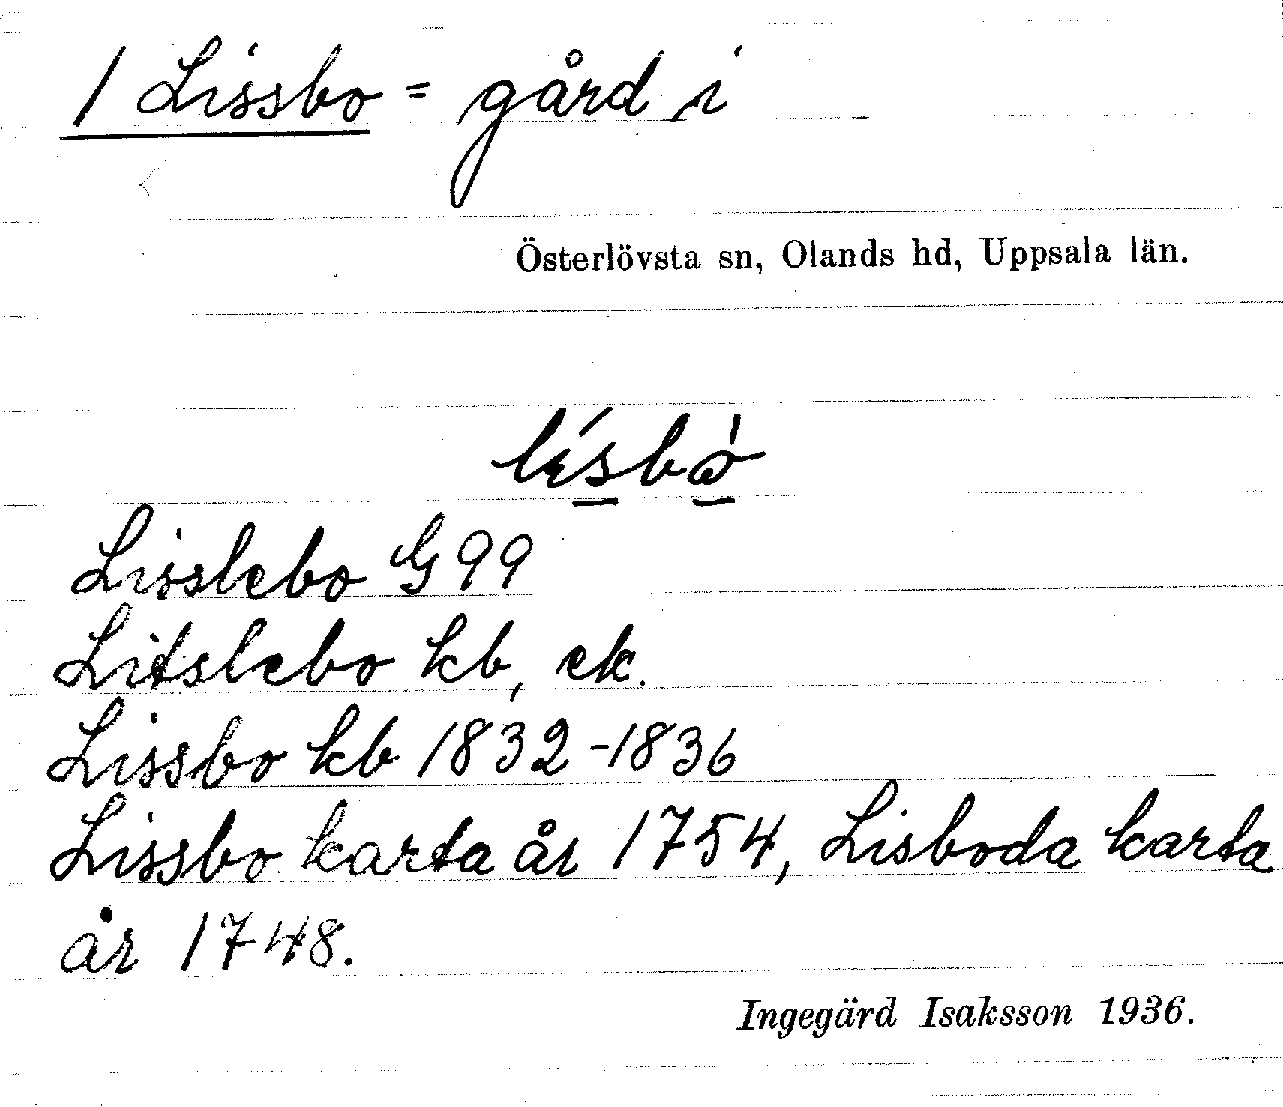 1 Lissbo = gård i
Österlövsta sn, Olands hd, Uppsala län.
lísbò
Lisslebo G 99
Litslebo kb, ek.
Lissbo kb 1832-1836
Lissbo karta år 1754, Lisboda karta
år 1748.
Ingegärd Isaksson 1936.